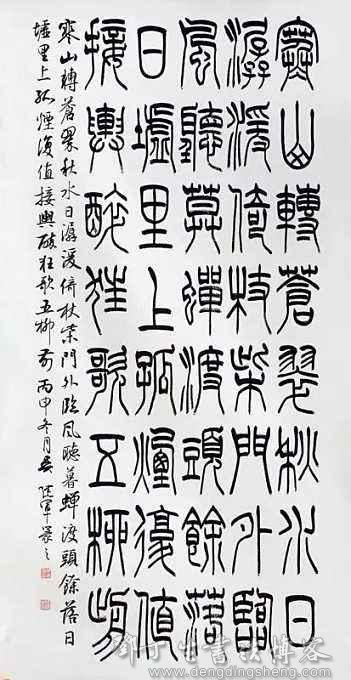 寒山轉蒼翠秋水日
潺湲倚杖柴門外臨
風聽莫蟬渡頭餘落
日墟里上孤煙復值
接輿醉狂歌五柳前
寒山轉蒼翠秋水日潺湲倚杖柴門外臨風聽暮蟬渡頭餘落日
墟里上孤煙復值接輿醉狂歌五柳前 丙申冬月 軍篆之
鄧丁生書法博客
www.dengdingsheng.com